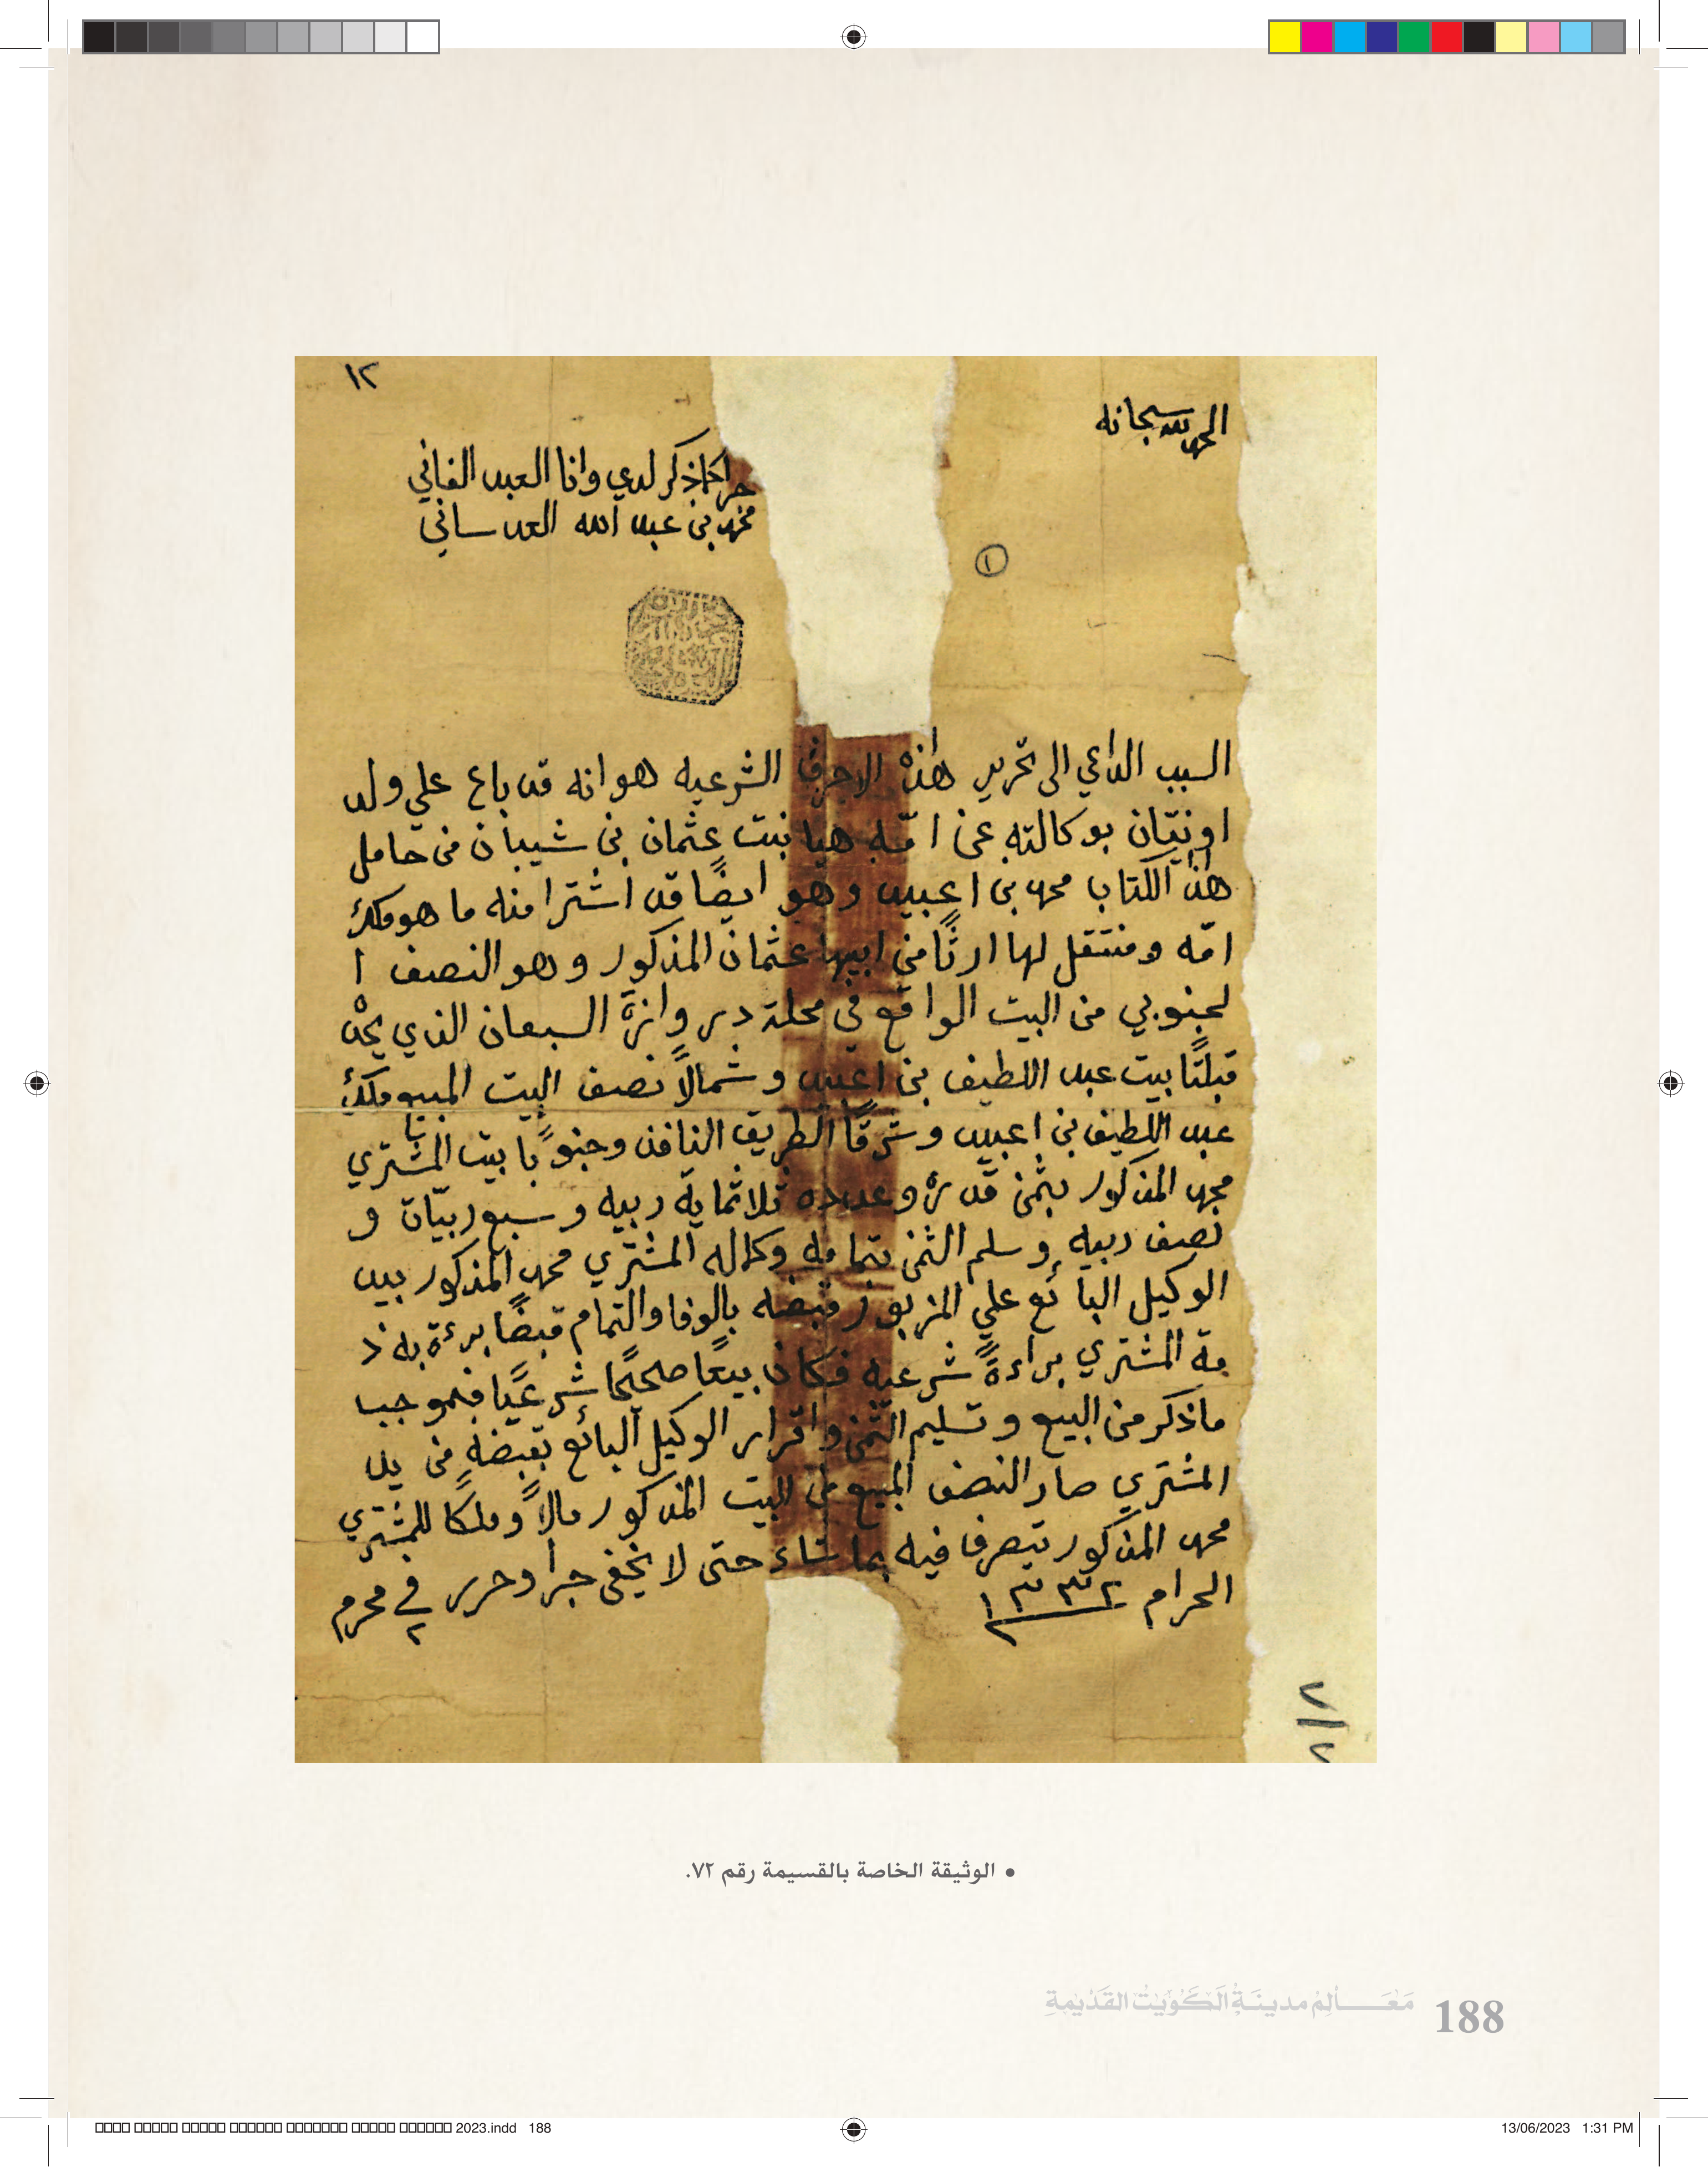 ١٢
الحمد لله سبحانه
جرا كما ذكر لدي وانا العبد الفاني
محمد بن عبد الله العدساني
١
السبب الداعي الى تحرير هذه الاحرف الشرعيه هو انه قد باع علي ولد
بوكالته عن امّه هيا بنت عثمان بن شيبان من حامل
هذا الكتاب محمد بن اعبيد وهو ايضًا قد اشترا منه ما هو ملك
امّه ومنتقل لها ارثًا من ابيها عثمان المذكور وهو النصف ا
لجنوبي من البيت الواقع في محلة دروازة السبعان الذي يحدّه
قبلتًا بيت عبد اللطيف بن اعبيد وشمالاً نصف البيت المبيوع ملك
عبد اللطيف بن اعبيد وشرقًا الطريق النافذ وجنوبًا بيت المشتري
محمد المذكور بثمن قدره وعدده ثلاثماية ربيه وسبع ربيّات و
نصف ربيه وسلم الثمن بتمامه وكماله المشتري محمد المذكور بيد
الوكيل البائع علي المزبور فقبضه بالوفا والتمام قبضًا برءة به ذ
مة المشتري براءةً شرعيه فكان بيعًا صحيحًا شرعيًا فبموجب
ما ذكر من البيع وتسليم الثمن واقرار الوكيل البائع بقبضه من يد
المشتري صار النصف المبيع من البيت المذكور مالاً وملكًا للمشتري
محمد المذكور يتصرف فيه بما شاء حتى لا يخفى جرا وحرر في ٢ محرم
الحرام ١٣٣٢
٢/٧
• الوثيقة الخاصة بالقسيمة رقم ٧٢.
مَعَالِم مدينَة الكويت القَديمة 188
2023.indd 188 13/06/2023 1:31 PM